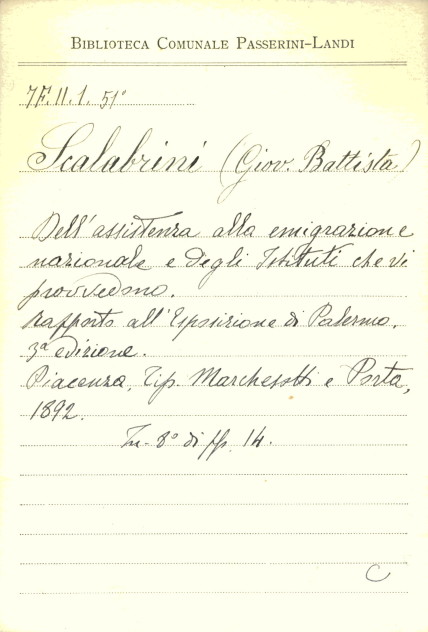 BIBLIOTECA COMUNALE PASSERINI-LANDI
7F.II.1.51°
Scalabrini (Giov. Battista)
Dell'assistenza alla emigrazione
nazionale e degli Istituti che vi
provvedono.
Rapporto all'Esposizione di Palermo.
3ª edizione.
Piacenza, Tip. Marchesotti e Porta,
1892.
In-8° di pp. 14.
C